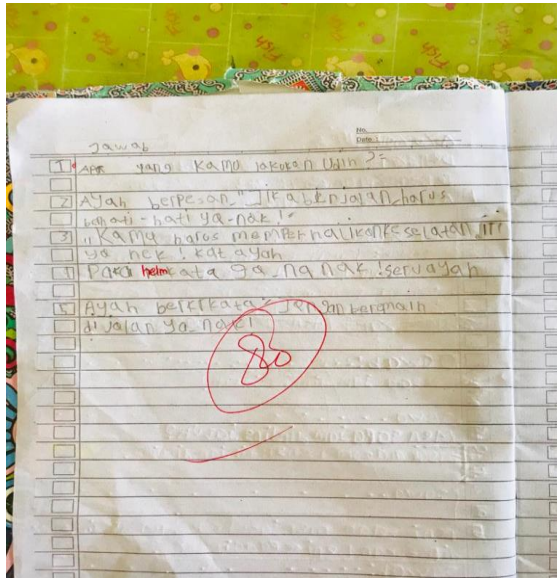 Jawab
No.
Date :
1 APA yang kamu lakukan Udin ?"
2 Ayah berpesan "Jika berjalan harus
hati-hati ya-nak !"
3 "Kamu harus memperhatikan keselatan
ya nek ! kat ayah
4 Pakai helm kata ya nak ! seru ayah
5 Ayah berkrkata " Jangan bermain
di jalan ya nak !
80